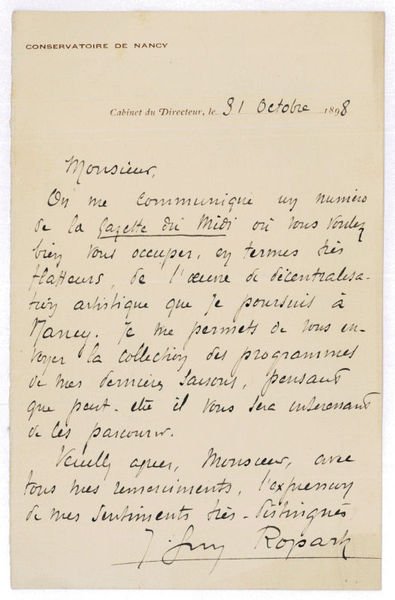 CONSERVATOIRE DE NANCY
Cabinet du Directeur, le 31 Octobre 1898
Monsieur,
On me communique un numéro
de la Gazette du Midi où vous voulez
bien vous occuper, en termes très
flatteurs, de l'œuvre de décentralisa-
tion artistique que je poursuis à
Nancy. Je me permets de vous en-
voyer la collection des programmes
de mes dernières saisons, pensant
que peut-être il vous sera intéressant
de les parcourir.
Veuillez agréer, Monsieur, avec
tous mes remerciements, l'expression
de mes sentiments très-distingués
J. Guy Ropartz